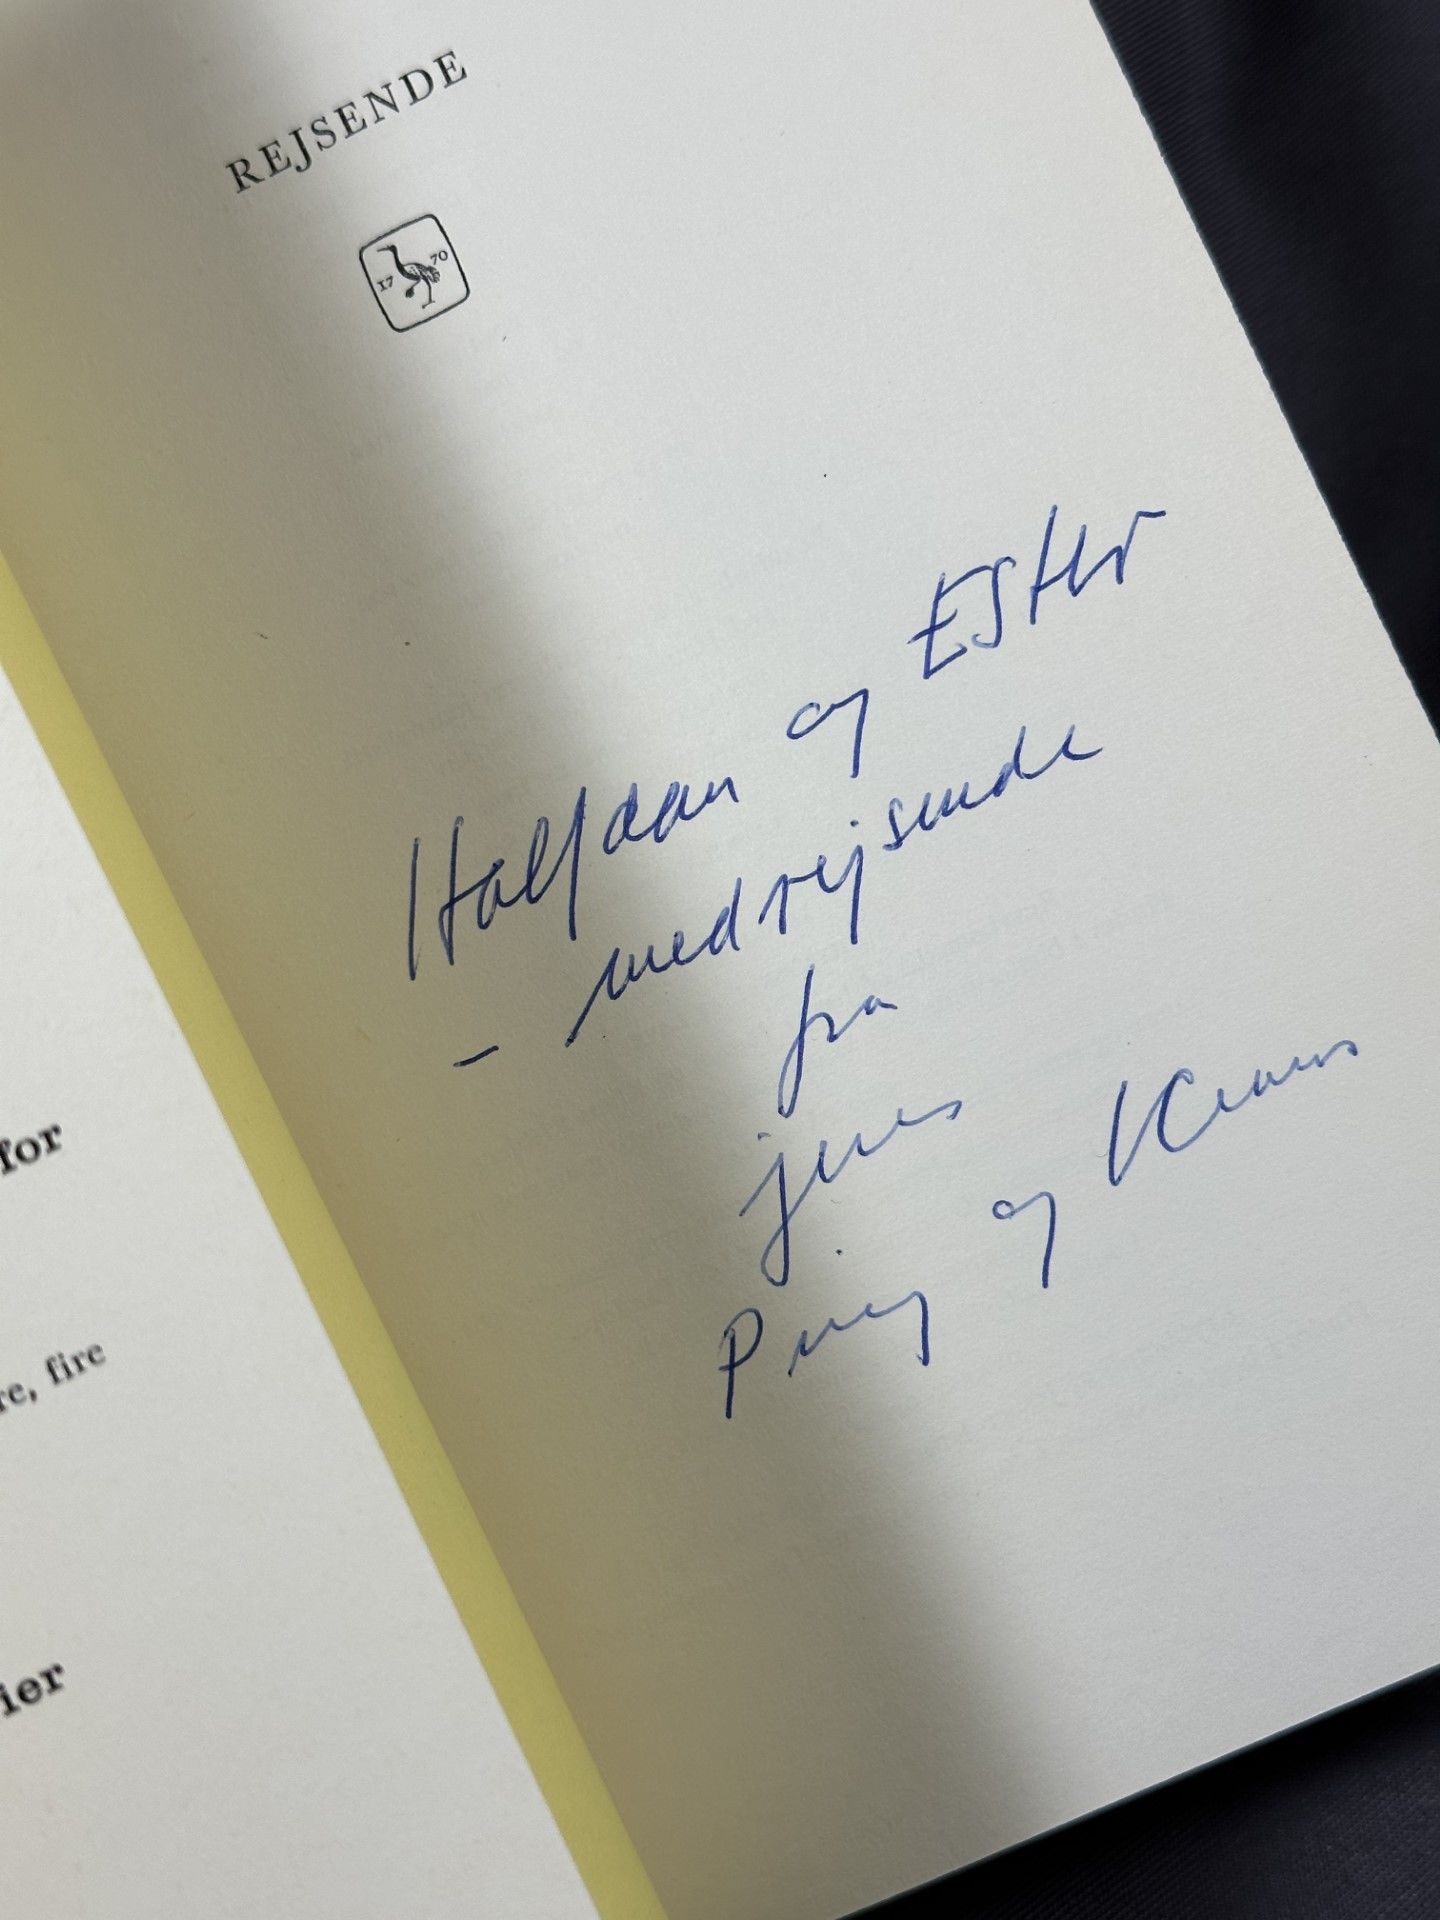 REJSENDE
17 70
Halfdan og Ester
- medrejsende
fra
jeres
og
for
re, fire
ier